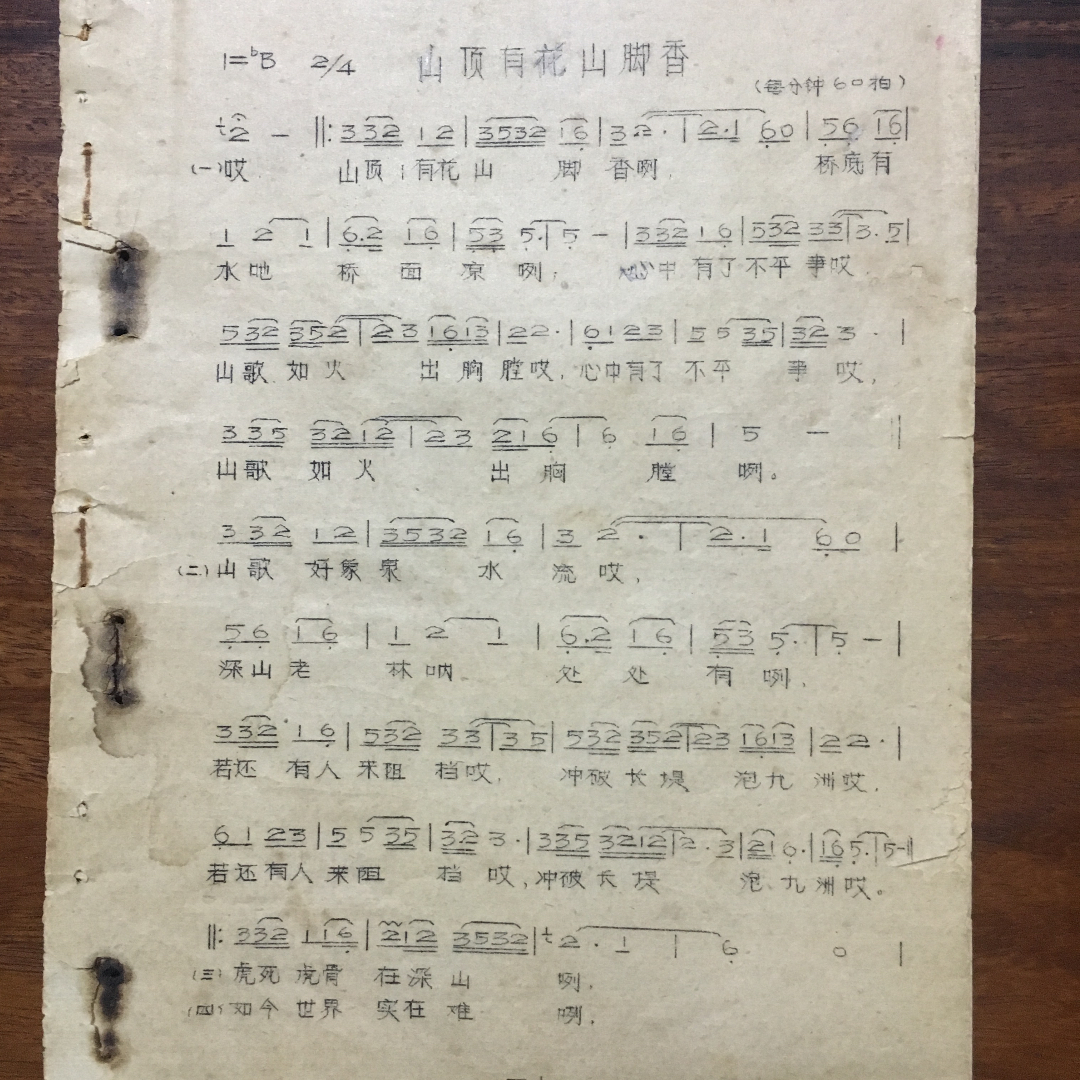 1=ᵇB 2/4 山顶有花山脚香
(每分钟60拍)
2 — ‖: 332 12 | 3532 16 | 3 2· | 2·1 60 | 56 16 |
(一)哎 山顶有花山 脚 香咧, 桥底有
1 2 1 | 6·2 16 | 53 5· | 5 — | 332 16 | 532 33 | 3·5 |
水吔 桥 面 凉 咧; 心中有了不平事哎,
532 352 | 23 1613 | 22· | 6123 | 5 535 | 32 3· |
山歌如火 出胸膛哎,心中有了不平 事哎,
335 3212 | 23 216 | 6 16 | 5 — ‖
山歌 如火 出胸 膛 咧。
332 12 | 3532 16 | 3 2· | 2·1 60 |
(二)山歌 好象泉 水 流哎,
56 16 | 1 2 1 | 6·2 16 | 53 5· | 5 — |
深山老 林呐 处 处 有咧,
332 16 | 532 33 | 35 | 532 352 | 23 1613 | 22· |
若还 有人来阻 挡哎, 冲破长堤 泡九洲哎,
61 23 | 5 535 | 32 3· | 335 3212 | 2·3 | 21 6· | 16 5· | 5 — ‖
若还有人来阻 挡哎,冲破长堤 泡九洲哎。
‖: 332 116 | 212 3532 | 2· 1 | 6 0 |
(三)虎死虎骨 在深山 咧,
(四)如今世界 实在难 咧,